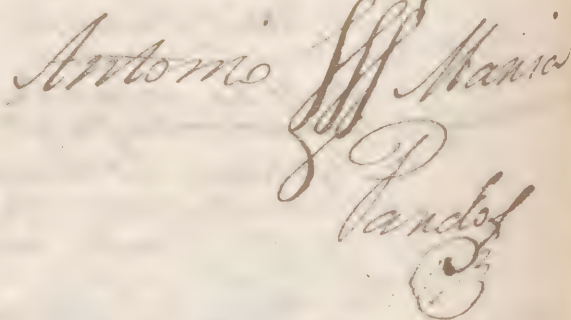 Antonio Maria
Pando